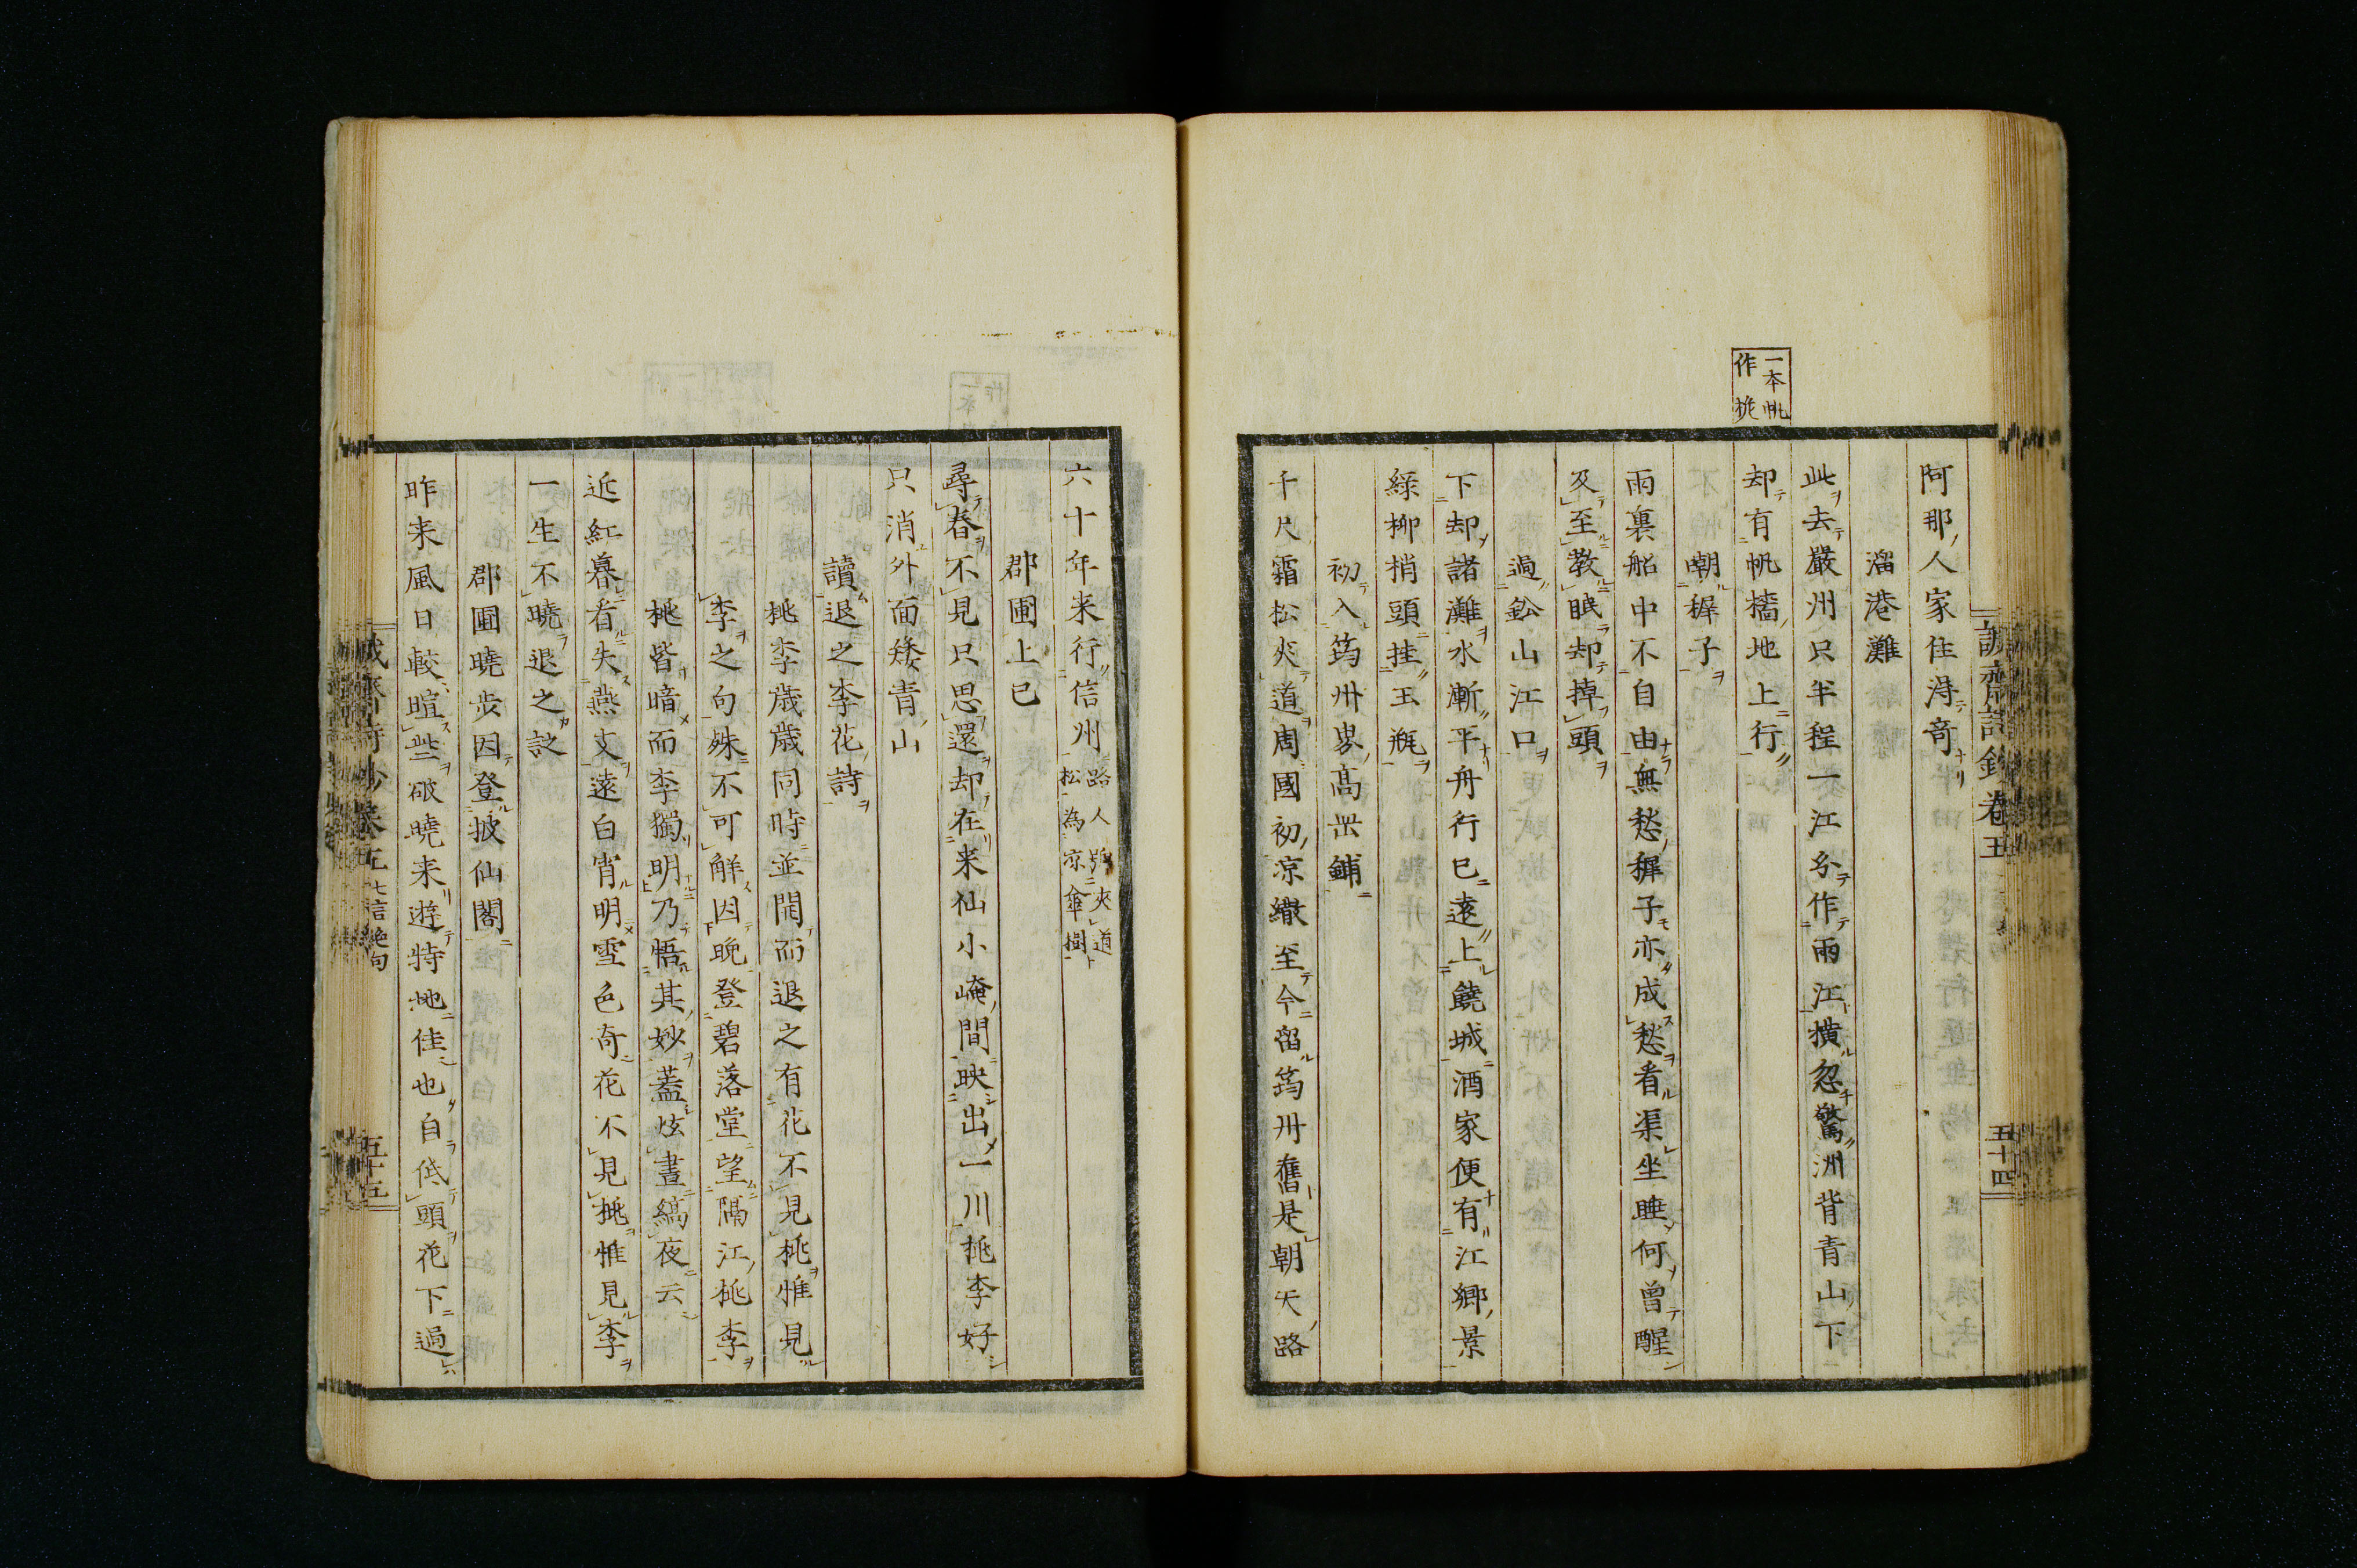 一本帆
作桅
誠齋詩鈔卷五
五十四
阿那人家住得奇
溜港灘
此去嚴州只半程一江分作兩江橫忽驚洲背青山下
却有帆檣地上行
嘲穉子
雨裏船中不自由無愁穉子亦成愁看渠坐睡何曾醒
及至教眠却掉頭
過鉛山江口
下却諸灘水漸平舟行已遠上饒城酒家便有江鄉景
綠柳梢頭挂玉瓶
初入筠州界高岊鋪
千尺霜松夾道周國初涼繖至今留筠州舊是朝天路
六十年来行信州路人號夾道
松為涼傘樹
郡圃上巳
尋春不見只思還却在来仙小崦間映出一川桃李好
只消外面矮青山
讀退之李花詩
桃李歲歲同時並開而退之有花不見桃惟見
李之句殊不可解因晚登碧落堂望隔江桃李
桃皆暗而李獨明乃悟其妙蓋炫晝縞夜云
近紅暮看失燕支遠白宵明雪色奇花不見桃惟見李
一生不曉退之詩
郡圃曉步因登披仙閣
昨来風日較暄些破曉来遊特地佳也自低頭花下過
誠齋詩鈔卷五 七言絶句
五十五